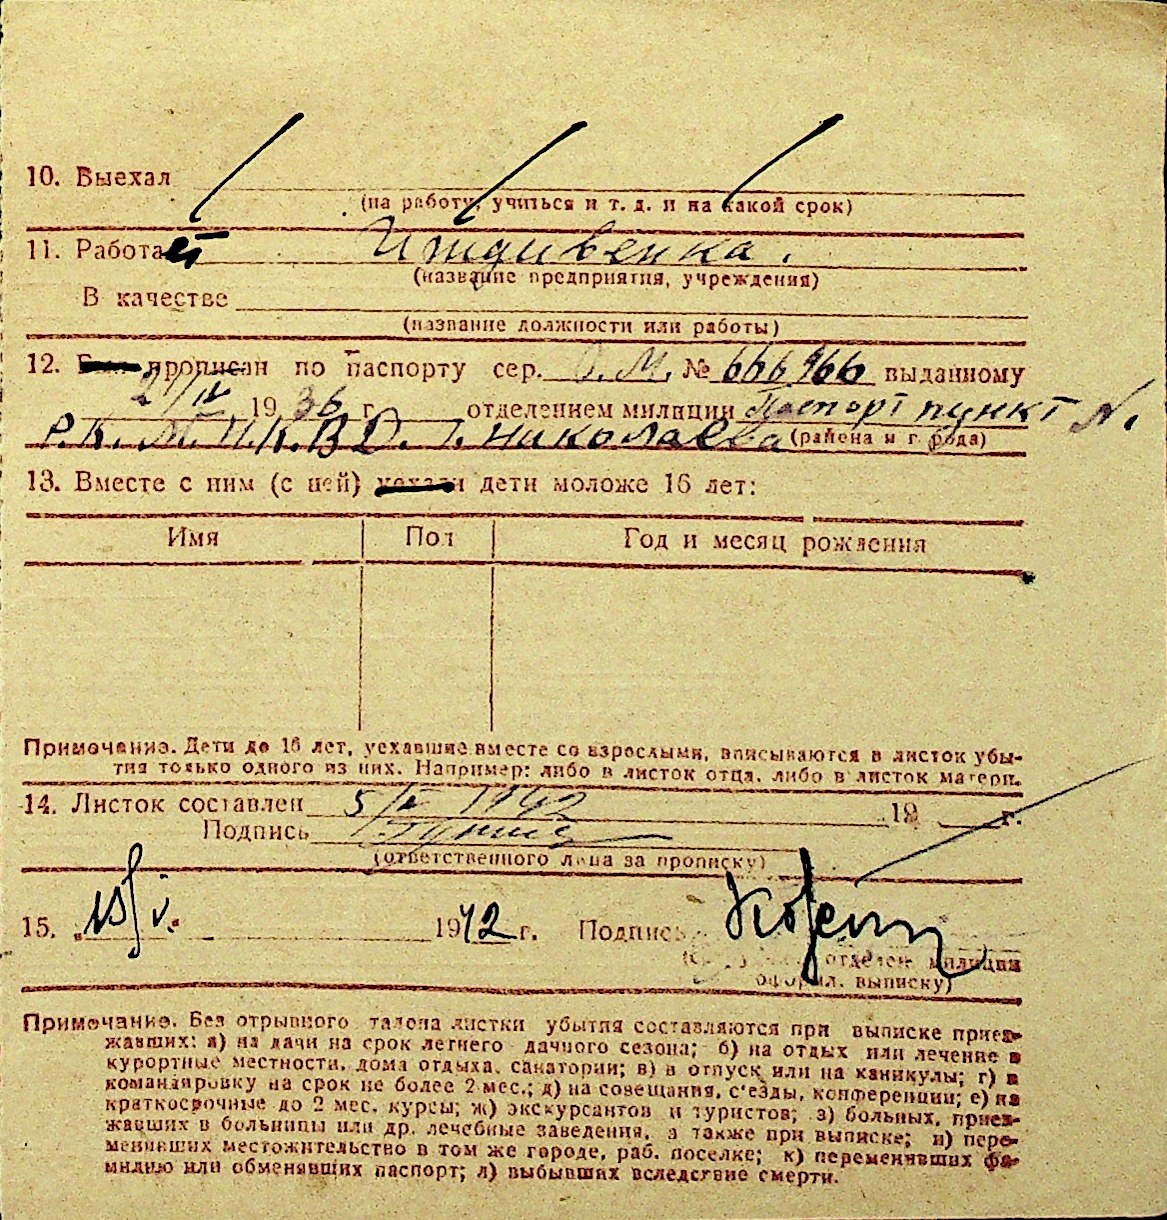 10. Выехал
(на работу, учиться и т. д. и на какой срок)
11. Работает Иждивенка.
(название предприятия, учреждения)
В качестве
(название должности или работы)
12. Был прописан по паспорту сер. М. № 666966 выданному
21/IV 1936 г. отделением милиции Паспорт пункт N.
Р.К.М.Н.К.В.Д. г. Николаева (района и города)
13. Вместе с ним (с ней) уехали дети моложе 16 лет:
Имя Пол Год и месяц рождения
Примечание. Дети до 16 лет, уехавшие вместе со взрослыми, вписываются в листок убы-
тия только одного из них. Например: либо в листок отца, либо в листок матери.
14. Листок составлен 5/V 1942 19 г.
Подпись
(ответственного лица за прописку)
15. „ V." 1942 г. Подпись
отделен. милиции
оформл. выписку)
Примечание. Без отрывного талона листки убытия составляются при выписке приез-
жавших: а) на дачи на срок летнего дачного сезона; б) на отдых или лечение в
курортные местности, дома отдыха, санатории; в) в отпуск или на каникулы; г) в
командировку на срок не более 2 мес.; д) на совещания, с'езды, конференции; е) на
краткосрочные до 2 мес. курсы; ж) экскурсантов и туристов; з) больных, приез-
жавших в больницы или др. лечебные заведения, а также при выписке; и) пере-
менивших местожительство в том же городе, раб. поселке; к) переменивших фа-
милию или обменявших паспорт; л) выбывших вследствие смерти.